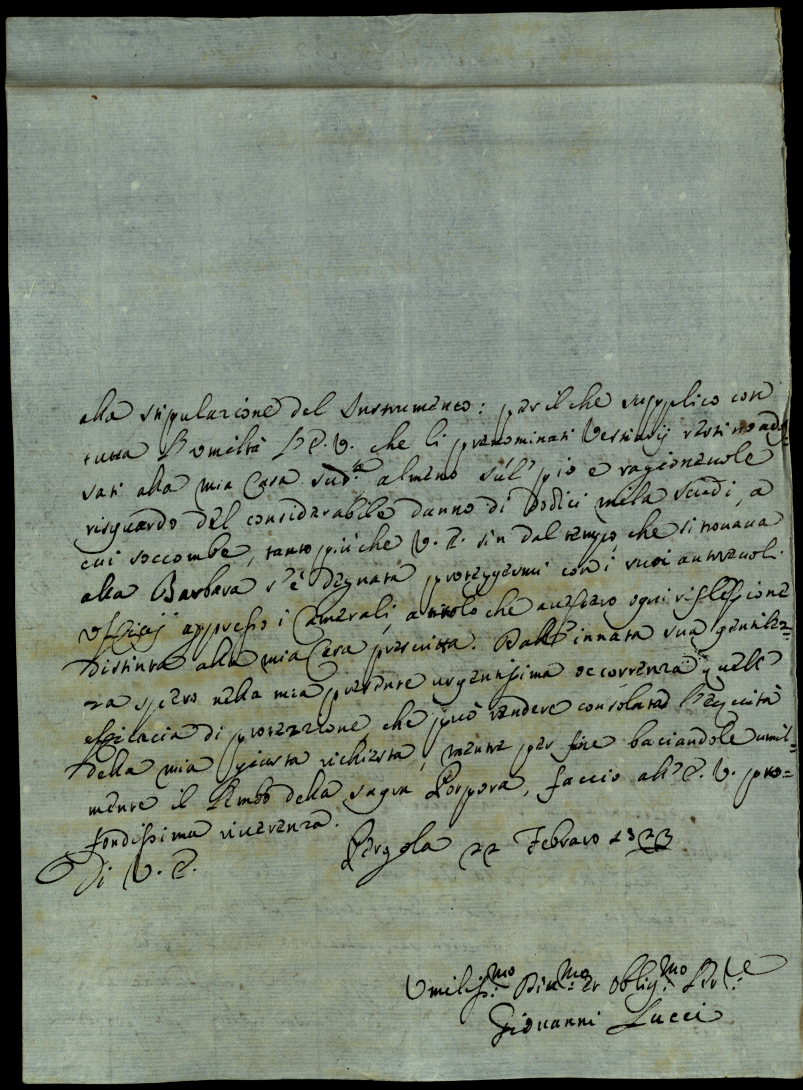 alla stipulazione del Instrumento: per il che supplico con
tutta l'umiltà l'E.V. che li prenominati Vestiarij restino ado-
sati alla mia Casa sud.ta almeno sul' pio e ragionevole
risguardo del considerabile danno di dodici mila scudi, a
cui soccombe, tanto più che V.E. sin dal tempo che si trovava
alla Barbara s'è degnata proteggermi con i suoi autorevoli
ufficij appresso i Camerali, a titolo che avessero ogni riflessione
distinta alla mia Casa. Dall'innata sua gentilez=
za spero nella mia presente urgentissima occorrenza quella
efficacia di protezione, che può rendere consolata l'equità
della mia giusta richiesta, mentre per fine baciandole umil=
mente il lembo della sagra Porpora, faccio all'E.V. pro=
fondissima riverenza.
Di V.E. Pergola 22 Febraro 1723
Umiliss.mo Div.mo et Oblig.mo Ser.re
Giovanni Lucci